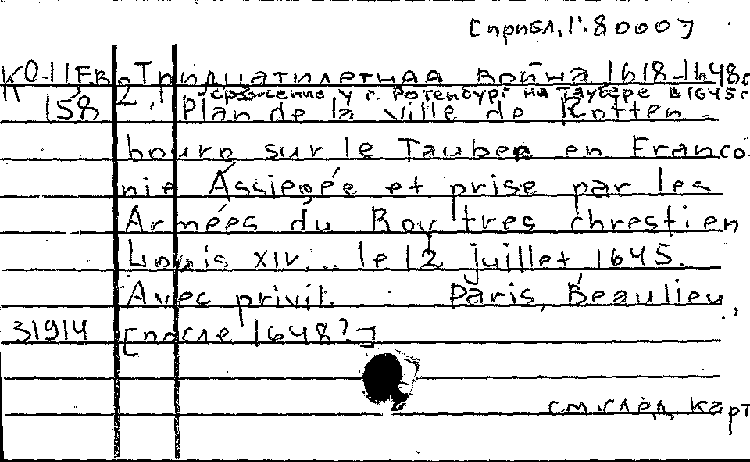 [прибл. 1:8000]
К0-11 Ев 2. Тридцатилетняя война 1618-1648г
158 сражение у г. Ротенбург на Таубере в 1645г
Plan de la ville de Rotten-
bourg sur le Tauber en Franco
nie Assiegée et prise par les
Armées du Roy tres chrestien
Louis XIV... le 12 juillet 1645.
Avec privil. Paris, Beaulieu,
31914 [после 1648?]
см. след. карт